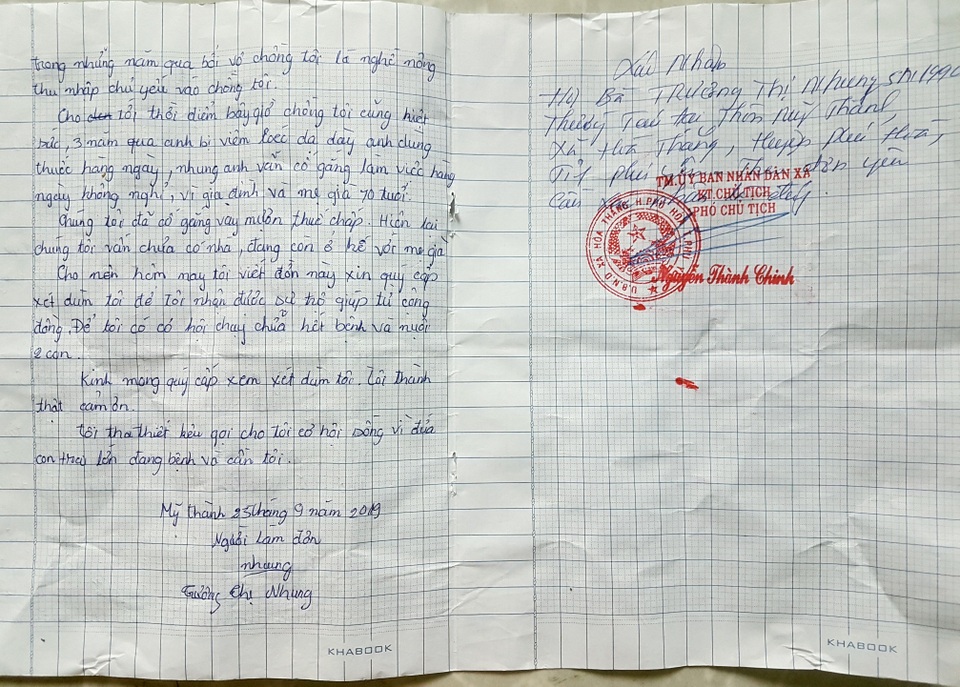 trong những năm qua bởi vợ chồng tôi là nghề nông
thu nhập chủ yếu vào chồng tôi.
Cho tới thời điểm bây giờ chồng tôi cũng kiệt
sức, 3 năm qua anh bị viêm loéc dạ dày anh dùng
thuốc hàng ngày, nhưng anh vẫn cố gắng làm việc hàng
ngày không nghỉ, vì gia đình và mẹ già 70 tuổi.
Chúng tôi đã cố gắng vay mượn thuế chấp. Hiện tại
chúng tôi vẫn chưa có nhà, đang còn ở kế với mẹ già
Cho nên hôm nay tôi viết đơn này xin quý cấp
xét dùm tôi để tôi nhận được sự hổ giúp từ cộng
đồng. Để tôi có cơ hội chạy chữa hết bệnh và nuôi
2 con.
Kính mong quý cấp xem xét dùm tôi. Tôi thành
thật cảm ơn.
Tôi tha thiết kêu gọi cho tôi cơ hội sống vì đứa
con trai lớn đang bệnh và cần tôi.
Mỹ thành 25 tháng 9 năm 2019
Người làm đơn
nhung
Trương Thị Nhung
KHABOOK
Xác Nhận
Hộ Bà TRƯƠNG Thị Nhung SN 1990
Thường Trú tại Thôn Mỹ Thành,
Xã Hòa Thắng, Huyện Phú Hòa,
Tỉnh phú
TM.ỦY BAN NHÂN DÂN XÃ
KT.CHỦ TỊCH
PHÓ CHỦ TỊCH
U.B.N.D XÃ HÒA THẮNG H.PHÚ HÒA
Nguyễn Thành Chinh
KHABOOK